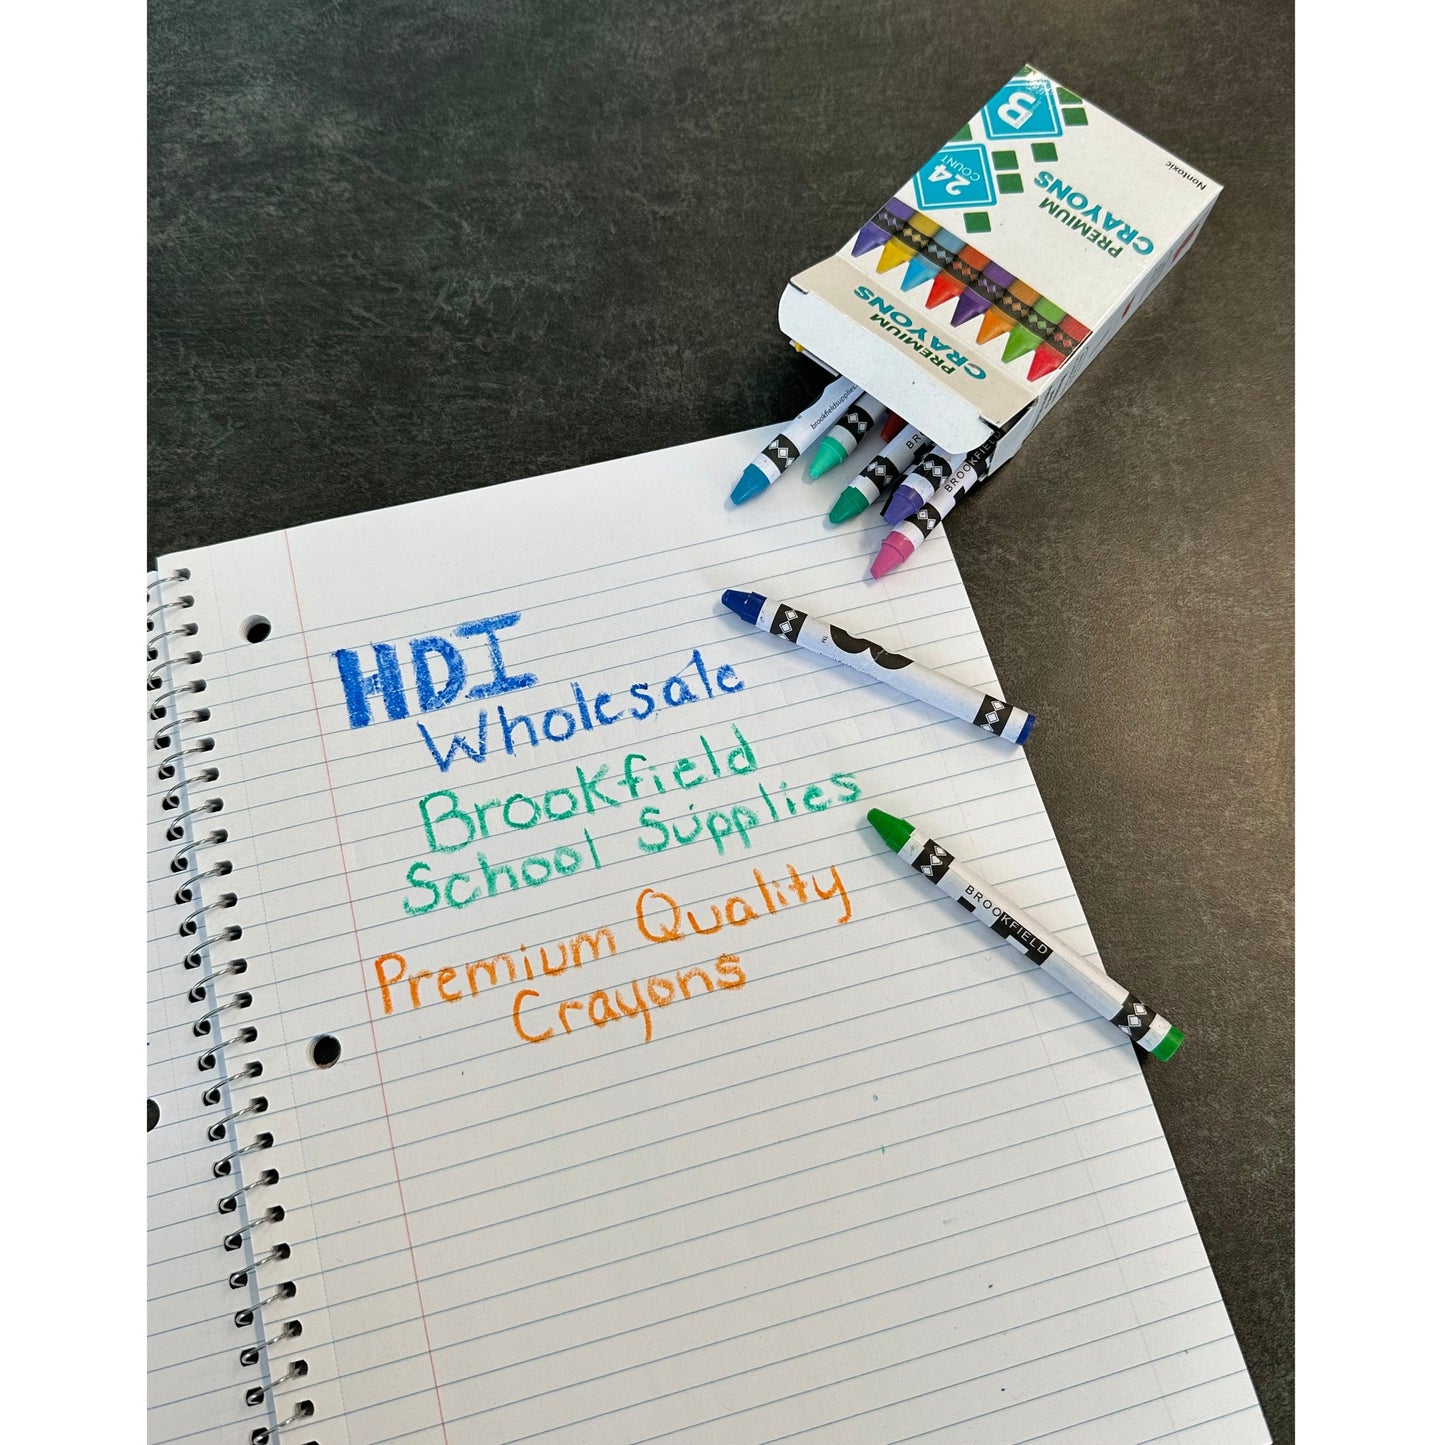 B
24
COUNT
Nontoxic
PREMIUM
CRAYONS
PREMIUM
CRAYONS
brookfieldsupplies.
BROOKFIELD
HDI
Wholesale
Brookfield
School Supplies
Premium Quality
Crayons
BROOKFIELD